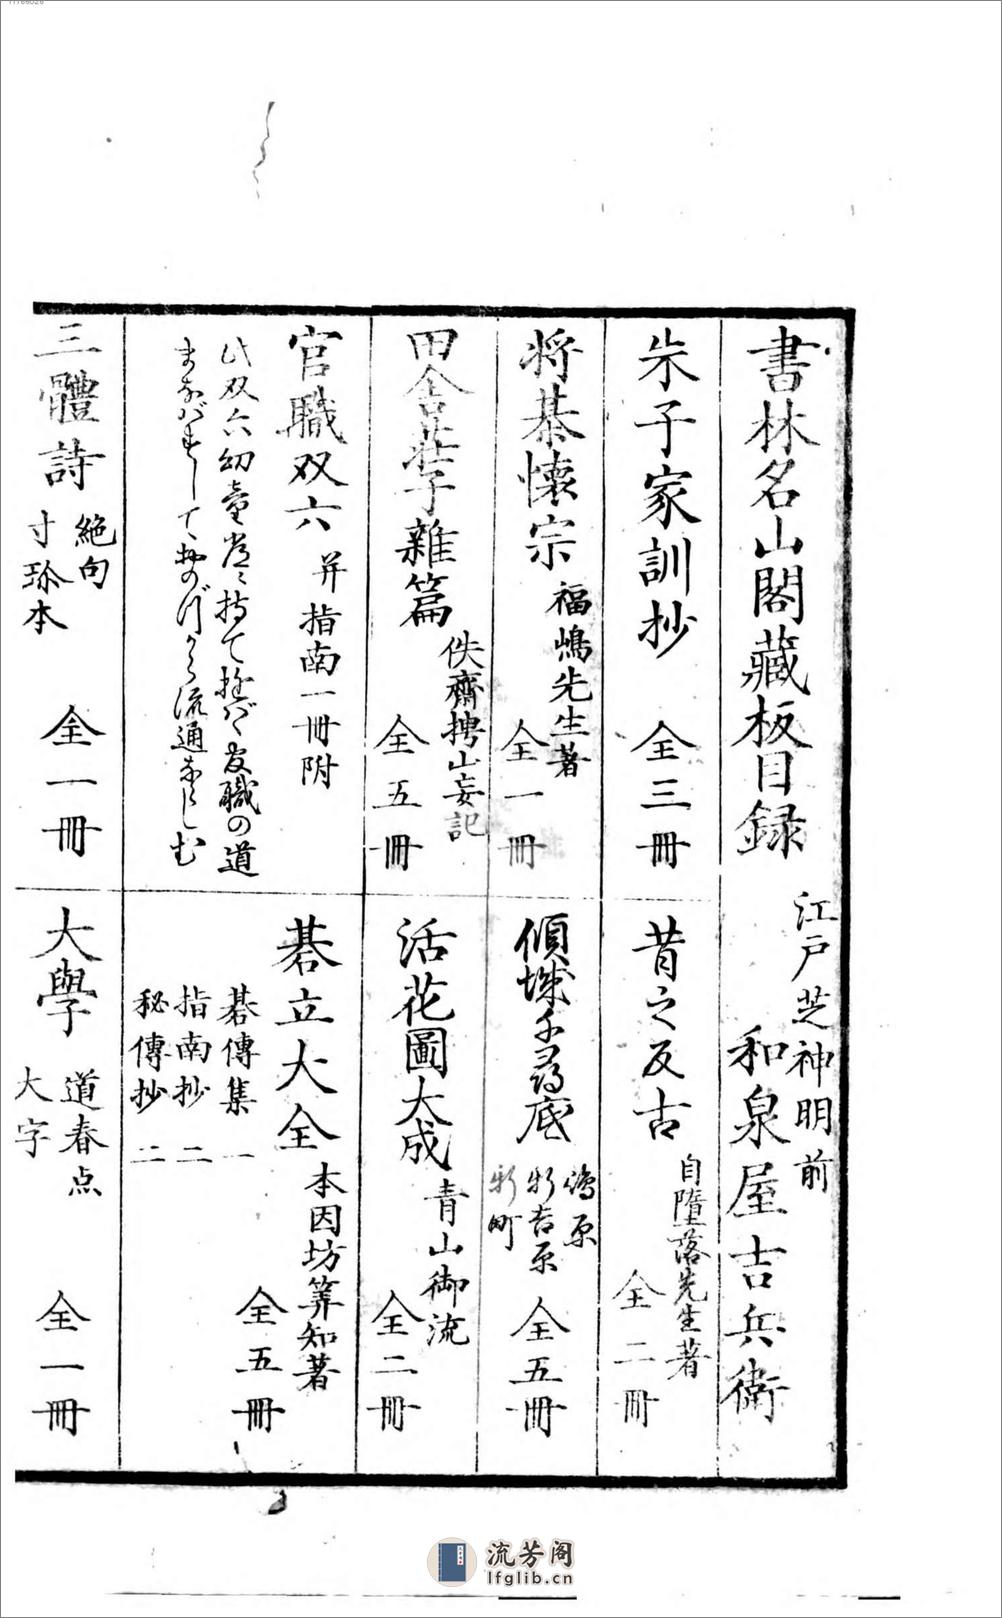 書林名山閣藏板目録
江戸芝神明前
和泉屋吉兵衛
朱子家訓抄 全三冊
昔之反古 自墮落先生著 全二冊
将棊懐宗 福嶋先生著 全一冊
傾城千尋底 嶋原 新吉原 新町 全五冊
田舎荘子雜篇 佚齋樗山妄記 全五冊
活花圖大成 青山御流 全二冊
官職双六 并指南一冊附
此双六幼童常に持て遊バ官職の道
まなバずしておのづから流通なさしむ
碁立大全 本因坊筭知著 全五冊
碁傳集 一
指南抄 二
秘傳抄 二
三體詩 絶句 寸珍本 全一冊
大學 道春点 大字 全一冊
流芳阁
lfglib.cn